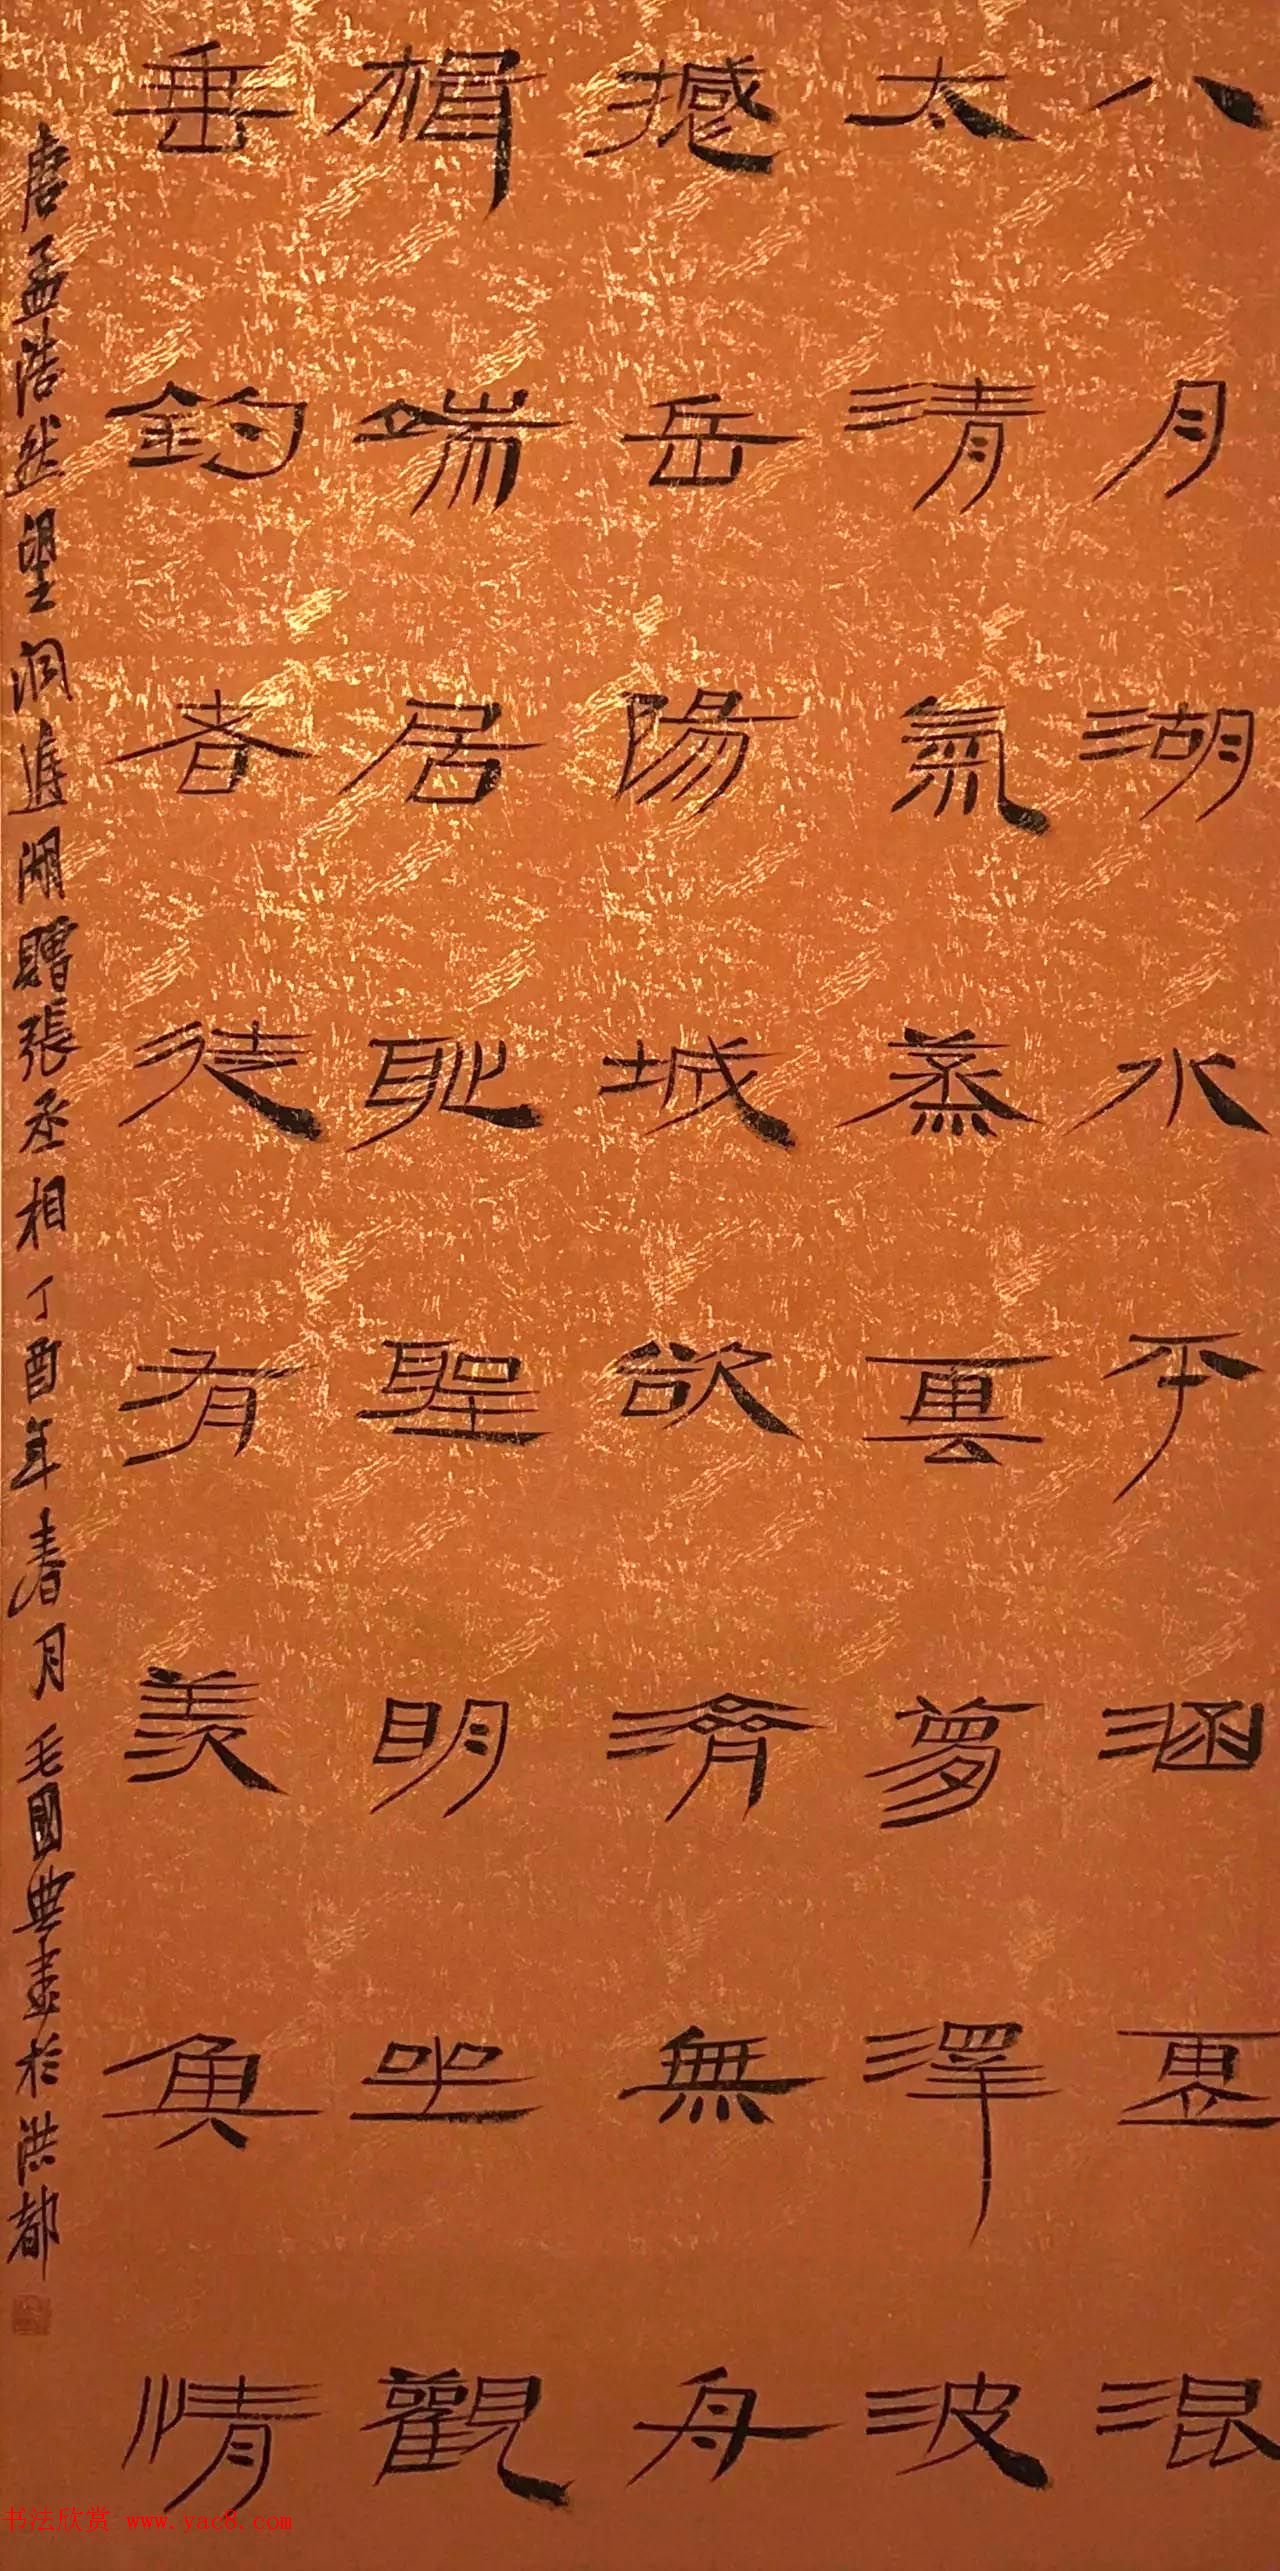 八月湖水平涵虛混
太清氣蒸雲夢澤波
撼岳陽城欲濟無舟
楫端居恥聖明坐觀
垂釣者徒有羨魚情
唐孟浩然望洞庭湖贈張丞相丁酉年春月毛國典書於洪都
书法欣赏 www.yac8.com